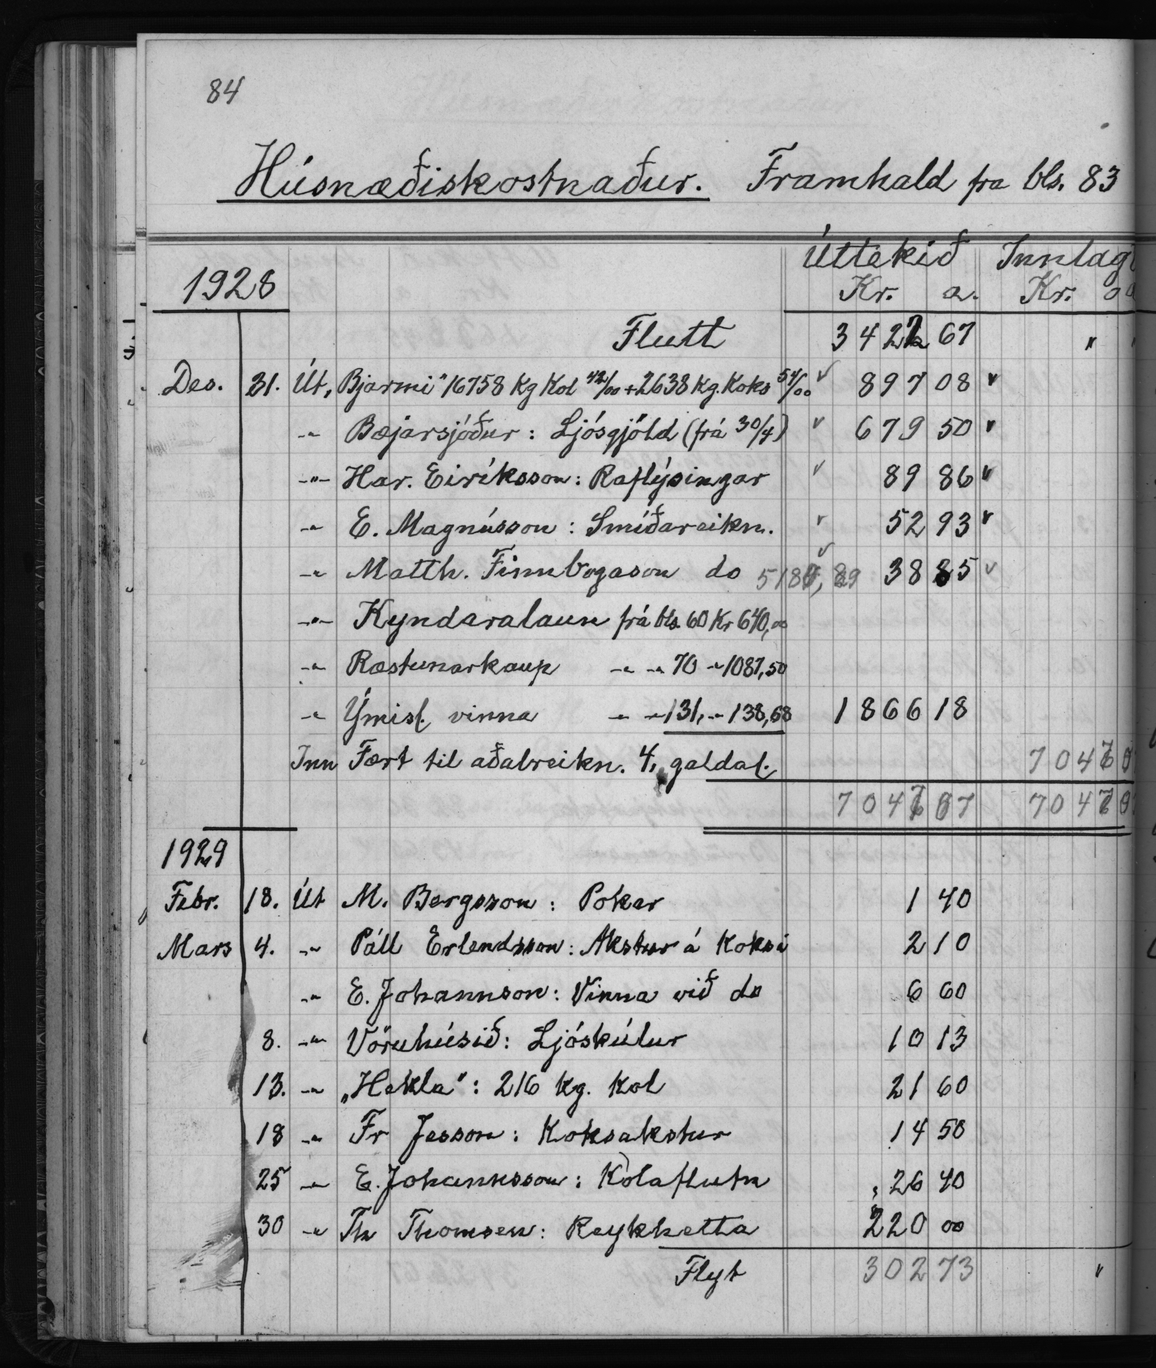 84
Húsnæðiskostnaður. Framhald fra bls. 83
Úttekið Innlagt
1928 Kr. a. Kr. a
Flutt 3422 67 "
Des. 31. Út, Bjarmi" 16758 Kg Kol 42/00 + 2638 Kg. Koks 54/00 897 08
-"- Bæjarsjóður: Ljósgjöld (frá 30/4) 679 50
-"- Har. Eiríksson: Raflýsingar 89 86
-"- E. Magnússon: Smíðareikn. 52 93
-"- Matth. Finnbogason do 38 85
-"- Kyndaralaun frá bls. 60 Kr 640,00
-"- Ræstunarkaup -"- -"- 70 -"- 1087,50
-"- Ýmisl. vinna -"- -"- 131, -"- 138,68 1866 18
Inn Fært til aðalreikn. 4, galdal. 7047 0
7047 07 7047 0
1929
Febr. 18. Út M. Bergsson: Poker 1 40
Mars 4. -"- Páll Erlendsson: Akstur á Koksi 2 10
-"- E. Johannson: Vinna við do 6 60
8. -"- Vöruhúsið: Ljóskúlur 10 13
13. -"- „Hekla": 216 kg. Kol 21 60
18 -"- Fr Jesson: Koksakstur 14 50
25 -"- E. Johannsson: Kolaflutn 26 40
30 -"- Th Thomsen: Reykhetta 220 00
Flyt 302 73 "